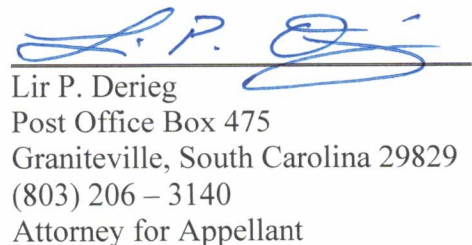 L. P. D
Lir P. Derieg
Post Office Box 475
Graniteville, South Carolina 29829
(803) 206 – 3140
Attorney for Appellant